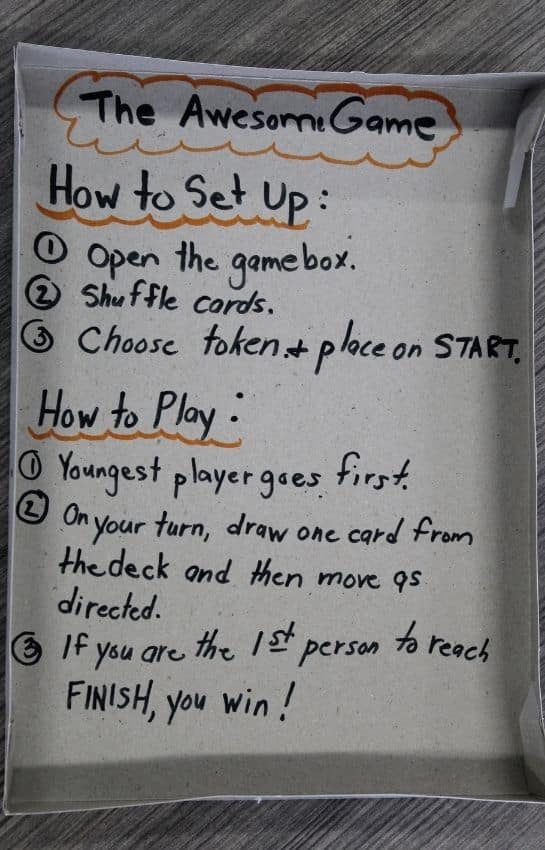 The Awesome Game
How to Set Up:
① Open the gamebox.
② Shuffle cards.
③ Choose token + place on START.
How to Play:
① Youngest player goes first.
② On your turn, draw one card from
the deck and then move as
directed.
③ If you are the 1st person to reach
FINISH, you win!